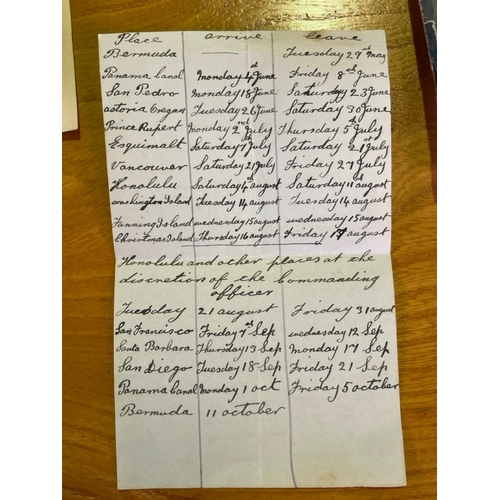 Place arrive leave
Bermuda — Tuesday 29th May
Panama Canal Monday 4st June Friday 8th June
San Pedro Monday 18 June Saturday 23 June
astoria Oregan Tuesday 26 June Saturday 30 June
Prince Rupert Monday 2nd July Thursday 5th July
Esquimalt Saturday 7th July Saturday 21st July
Vancouver Saturday 21 July Friday 27 July
Honolulu Saturday 4th august Saturday 11th august
washington Island Tuesday 14 august Tuesday 14 august
Fanning Island wednesday 15 august wednesday 15 august
Christmas Island Thursday 16 august Friday 17 august
Honolulu and other places at the
discretion of the Commanding
officer
Tuesday 21 august Friday 31 august
San Francisco Friday 7th Sep wednesday 12 Sep
Santa Barbara Thursday 13 Sep Monday 17 Sep
San Diego Tuesday 18 Sep Friday 21 Sep
Panama Canal Monday 1 oct Friday 5 october
Bermuda 11 october